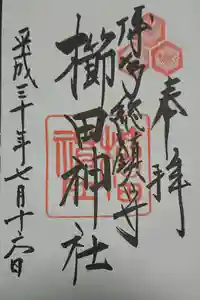 奉拝
博多総鎮守
櫛田神社
平成三十年七月十六日